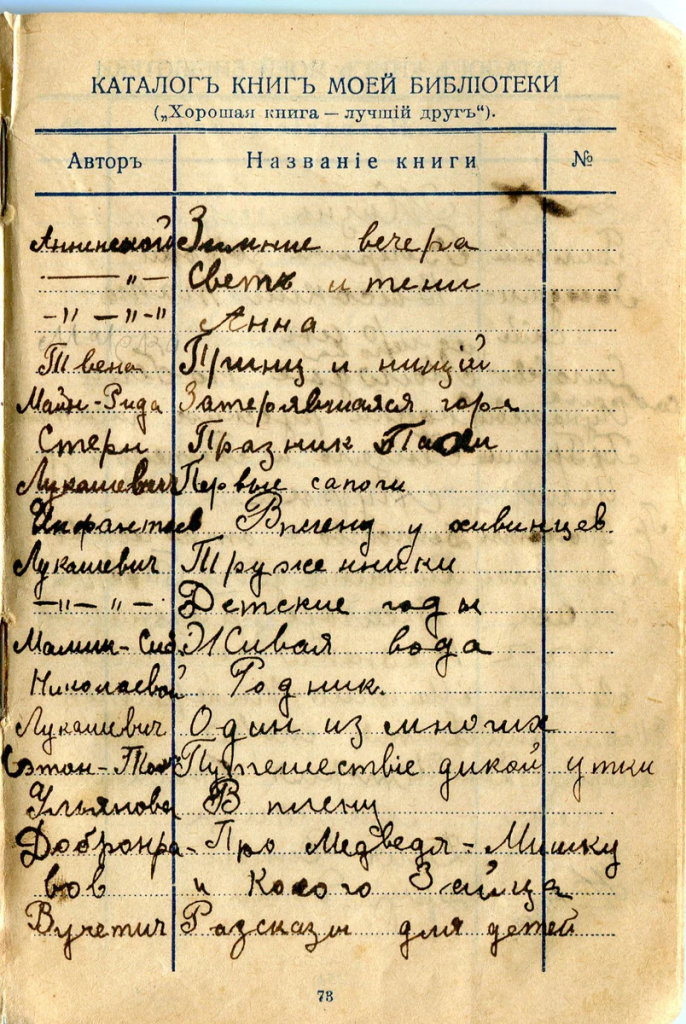 КАТАЛОГЪ КНИГЪ МОЕЙ БИБЛІОТЕКИ
(„Хорошая книга — лучшій другъ“).
Авторъ Названіе книги №
Анненской Зимние вечера
— „ — Светъ и тени
— „ — „ — „ Анна
Твена Принц и нищій
Майн-Рида Затерявшаяся гора
Стерн Празник Пасхи
Лукашевич Первые сапоги
Инфантьев В плену у хивинцев.
Лукашевич Труженники
— „ — „ — Детские годы
Мамин-Сиб. Живая вода
Николаевой Родник.
Лукашевич Один из многих
Сэтон-Том Путешествіе дикой утки
Ульянова В плену
Добронра- Про Медведя-Мишку
вов и Косого Зайца
Вучетич Разсказы для детей
73